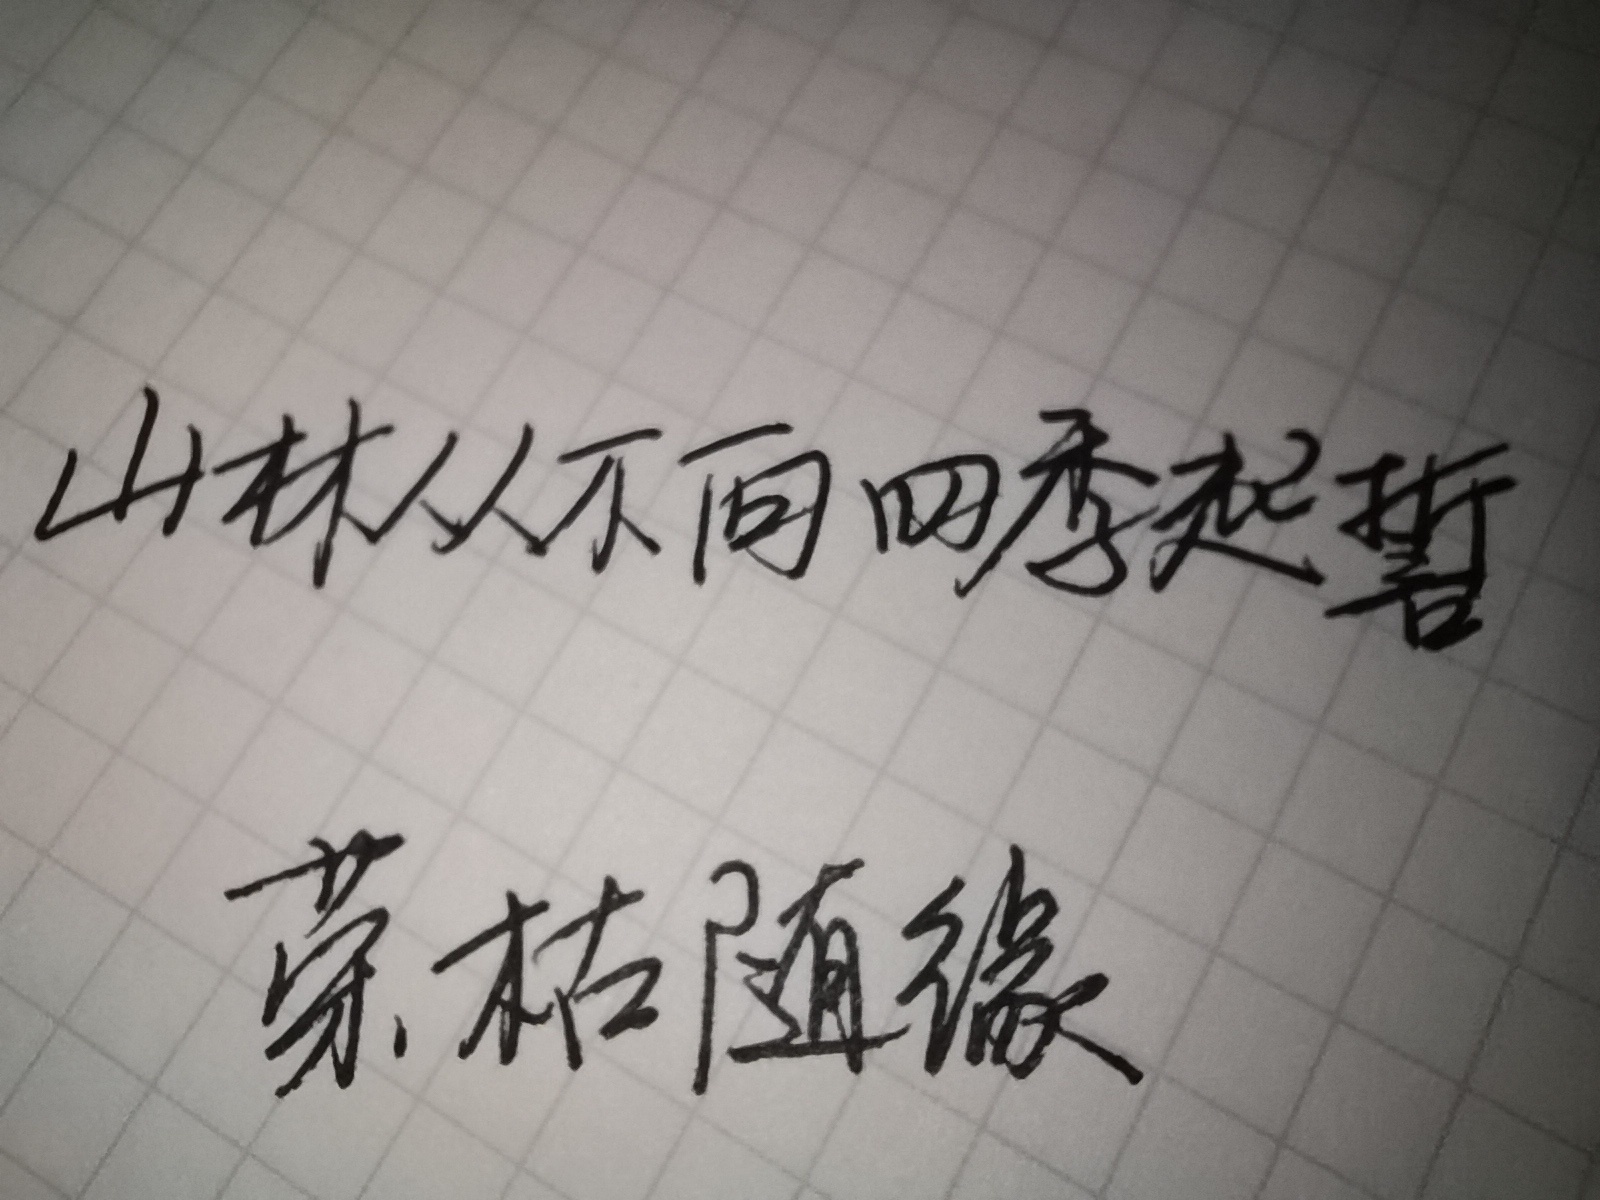 山林从不向四季起誓
荣枯随缘